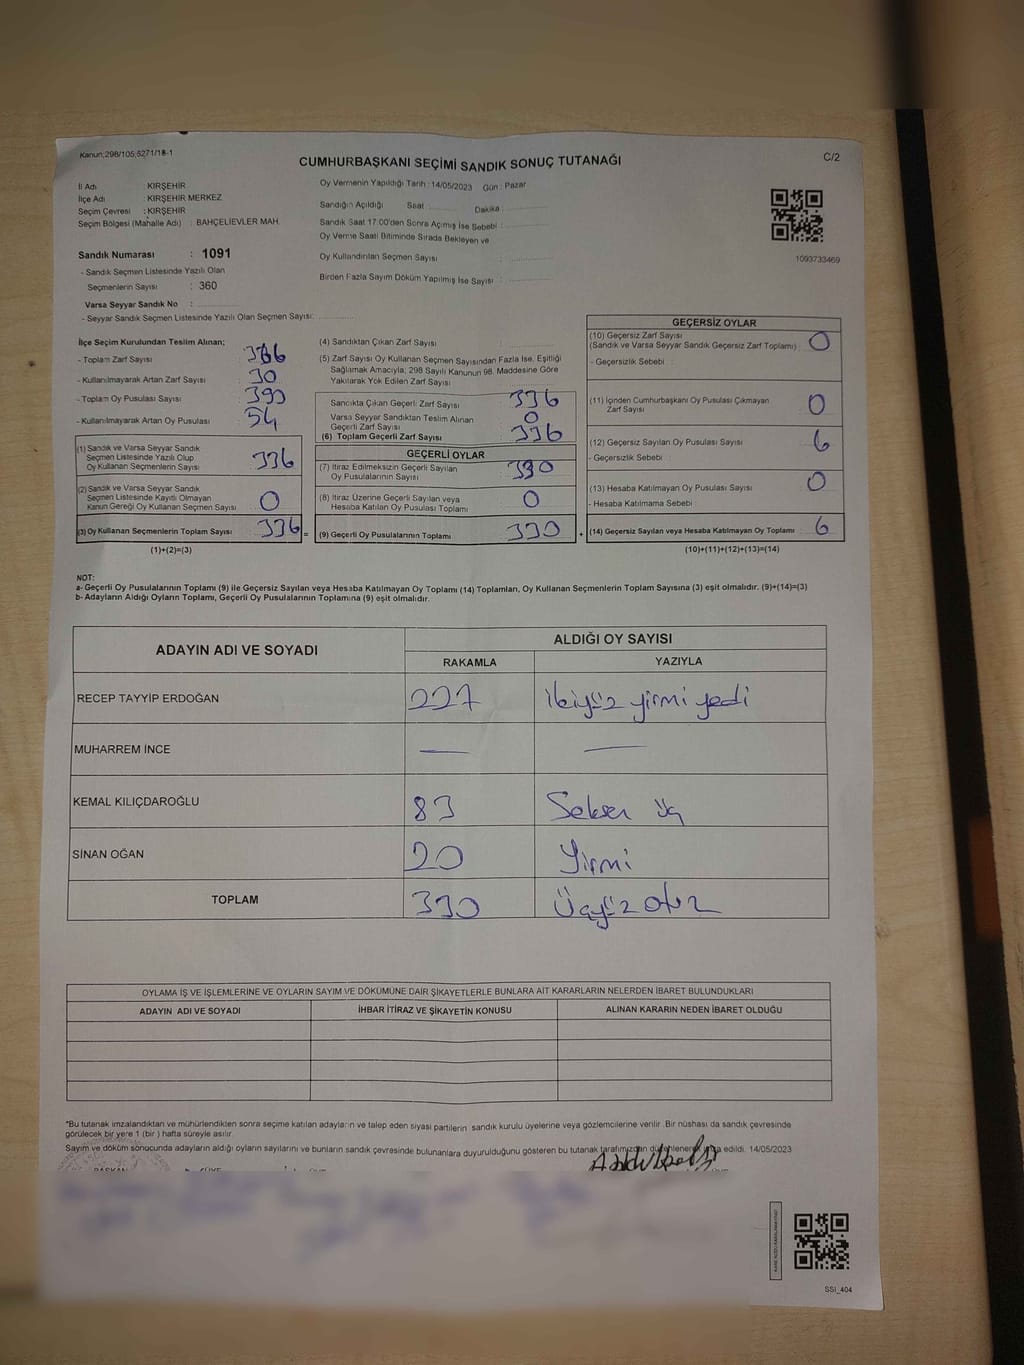 Kanun:298/105;6271/18-1
CUMHURBAŞKANI SEÇİMİ SANDIK SONUÇ TUTANAĞI
C/2
İl Adı : KIRŞEHİR
İlçe Adı : KIRŞEHİR MERKEZ
Seçim Çevresi : KIRŞEHİR
Seçim Bölgesi (Mahalle Adı) : BAHÇELİEVLER MAH.
Sandık Numarası : 1091
- Sandık Seçmen Listesinde Yazılı Olan
Seçmenlerin Sayısı : 360
Varsa Seyyar Sandık No :
- Seyyar Sandık Seçmen Listesinde Yazılı Olan Seçmen Sayısı:
Oy Vermenin Yapıldığı Tarih : 14/05/2023 Gün : Pazar
Sandığın Açıldığı Saat Dakika
Sandık Saat 17:00'den Sonra Açılmış İse Sebebi :
Oy Verme Saati Bitiminde Sırada Bekleyen ve
Oy Kullandırılan Seçmen Sayısı :
Birden Fazla Sayım Döküm Yapılmış İse Sayısı :
1093733469
İlçe Seçim Kurulundan Teslim Alınan;
- Toplam Zarf Sayısı
- Kullanılmayarak Artan Zarf Sayısı : 30
- Toplam Oy Pusulası Sayısı : 390
- Kullanılmayarak Artan Oy Pusulası : 54
(1) Sandık ve Varsa Seyyar Sandık
Seçmen Listesinde Yazılı Olup
Oy Kullanan Seçmenlerin Sayısı 336
(2) Sandık ve Varsa Seyyar Sandık
Seçmen Listesinde Kayıtlı Olmayan
Kanun Gereği Oy Kullanan Seçmen Sayısı 0
(3) Oy Kullanan Seçmenlerin Toplam Sayısı 336 =
(1)+(2)=(3)
(4) Sandıktan Çıkan Zarf Sayısı :
(5) Zarf Sayısı Oy Kullanan Seçmen Sayısından Fazla İse, Eşitliği
Sağlamak Amacıyla; 298 Sayılı Kanunun 98. Maddesine Göre
Yakılarak Yok Edilen Zarf Sayısı :
Sandıkta Çıkan Geçerli Zarf Sayısı 336
Varsa Seyyar Sandıktan Teslim Alınan
Geçerli Zarf Sayısı 0
(6) Toplam Geçerli Zarf Sayısı 336
GEÇERLİ OYLAR
(7) İtiraz Edilmeksizin Geçerli Sayılan
Oy Pusulalarının Sayısı 330
(8) İtiraz Üzerine Geçerli Sayılan veya
Hesaba Katılan Oy Pusulası Toplamı 0
(9) Geçerli Oy Pusulalarının Toplamı 330 +
GEÇERSİZ OYLAR
(10) Geçersiz Zarf Sayısı
(Sandık ve Varsa Seyyar Sandık Geçersiz Zarf Toplamı) 0
- Geçersizlik Sebebi :
(11) İçinden Cumhurbaşkanı Oy Pusulası Çıkmayan
Zarf Sayısı 0
(12) Geçersiz Sayılan Oy Pusulası Sayısı 6
- Geçersizlik Sebebi :
(13) Hesaba Katılmayan Oy Pusulası Sayısı 0
- Hesaba Katılmama Sebebi :
(14) Geçersiz Sayılan veya Hesaba Katılmayan Oy Toplamı 6
(10)+(11)+(12)+(13)=(14)
NOT:
a- Geçerli Oy Pusulalarının Toplamı (9) ile Geçersiz Sayılan veya Hesaba Katılmayan Oy Toplamı (14) Toplamları, Oy Kullanan Seçmenlerin Toplam Sayısına (3) eşit olmalıdır. (9)+(14)=(3)
b- Adayların Aldığı Oyların Toplamı, Geçerli Oy Pusulalarının Toplamına (9) eşit olmalıdır.
ADAYIN ADI VE SOYADI
ALDIĞI OY SAYISI
RAKAMLA YAZIYLA
RECEP TAYYİP ERDOĞAN 227 ikiyüz yirmi yedi
MUHARREM İNCE — —
KEMAL KILIÇDAROĞLU 83 Seksen üç
SİNAN OĞAN 20 Yirmi
TOPLAM 330 Üçyüz otuz
OYLAMA İŞ VE İŞLEMLERİNE VE OYLARIN SAYIM VE DÖKÜMÜNE DAİR ŞİKAYETLERLE BUNLARA AİT KARARLARIN NELERDEN İBARET BULUNDUKLARI
ADAYIN ADI VE SOYADI İHBAR İTİRAZ VE ŞİKAYETİN KONUSU ALINAN KARARIN NEDEN İBARET OLDUĞU
*Bu tutanak imzalandıktan ve mühürlendikten sonra seçime katılan adayların ve talep eden siyasi partilerin sandık kurulu üyelerine veya gözlemcilerine verilir. Bir nüshası da sandık çevresinde
görülecek bir yere 1 (bir) hafta süreyle asılır.
Sayım ve döküm sonucunda adayların aldığı oyların sayılarını ve bunların sandık çevresinde bulunanlara duyurulduğunu gösteren bu tutanak tarafımızdan düzenlenerek imza edildi. 14/05/2023
BAŞKAN
SSI_404